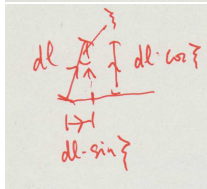 ξ
dl
dl·cos ξ
dl·sin ξ